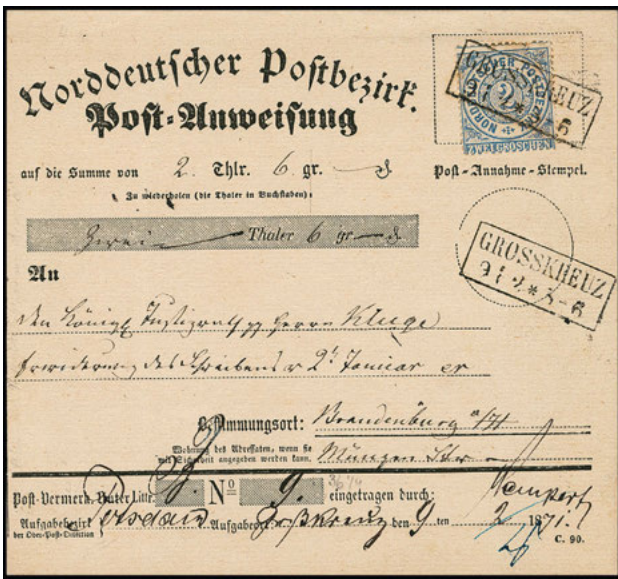 Norddeutscher Postbezirk.
Post-Anweisung
GROSSKREUZ
9 2 * 5-6
auf die Summe von 2. Thlr. 6 gr.
Post-Annahme-Stempel.
Zu wiederholen (die Thaler in Buchstaben):
Zwei Thaler 6 gr.
GROSSKREUZ
9 2 * 5-6
An
den Königl Justizrath Herrn Kluge
des Schreibens v 2t Januar
Bestimmungsort: Brandenburg a/H
Wohnung des Adressaten, wenn sie
mit Sicherheit angegeben werden kann.
Münzen Str
Post-Vermerk. Unter Littr. No 9. eingetragen durch:
Aufgabebezirk Potsdam Aufgabeort Großkreuz den 9 ten 2 1871.
der Ober-Post-Direction
C. 90.